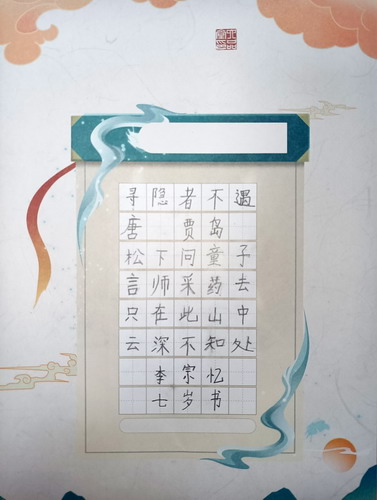 寻隐者不遇
唐 贾岛
松下问童子
言师采药去
只在此山中
云深不知处
李宗忆
七岁书